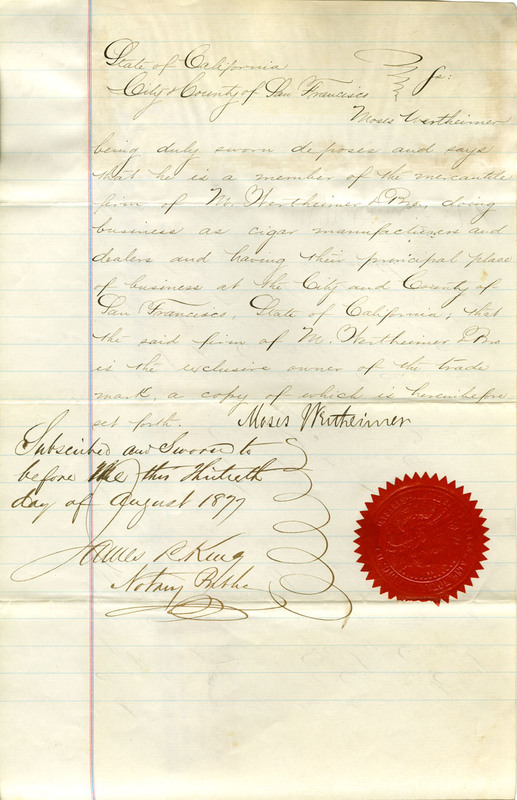 State of California
City & County of San Francisco } ss:
Moses Wertheimer
being duly sworn deposes and says
that he is a member of the mercantile
firm of M. Wertheimer & Bro, doing
business as cigar manufacturers and
dealers and having their principal place
of business at the City and County of
San Francisco, State of California; that
the said firm of M. Wertheimer & Bro
is the exclusive owner of the trade
mark, a copy of which is hereinbefore
set forth. Moses Wertheimer
Subscribed and Sworn to
before Me this Thirtieth
day of August 1877
James R. King
Notary Public